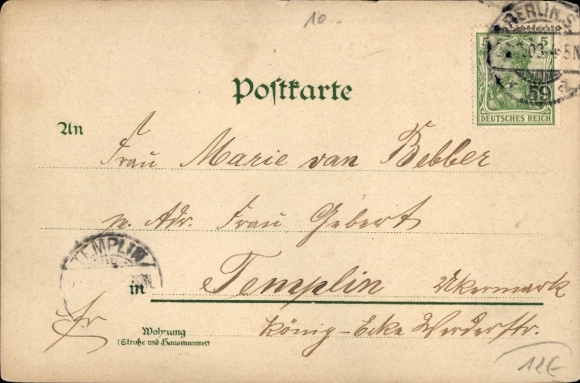 10.
BERLIN.S
03. 4-5N
59
5 5
DEUTSCHES REICH
Postkarte
An
Frau Marie van Bebber
p. Adr. Frau Gebert
TEMPLIN
in Templin Ukermark
Fr
Wohnung
(Straße und Hausnummer)
König-Ecke Werderstr.
12€